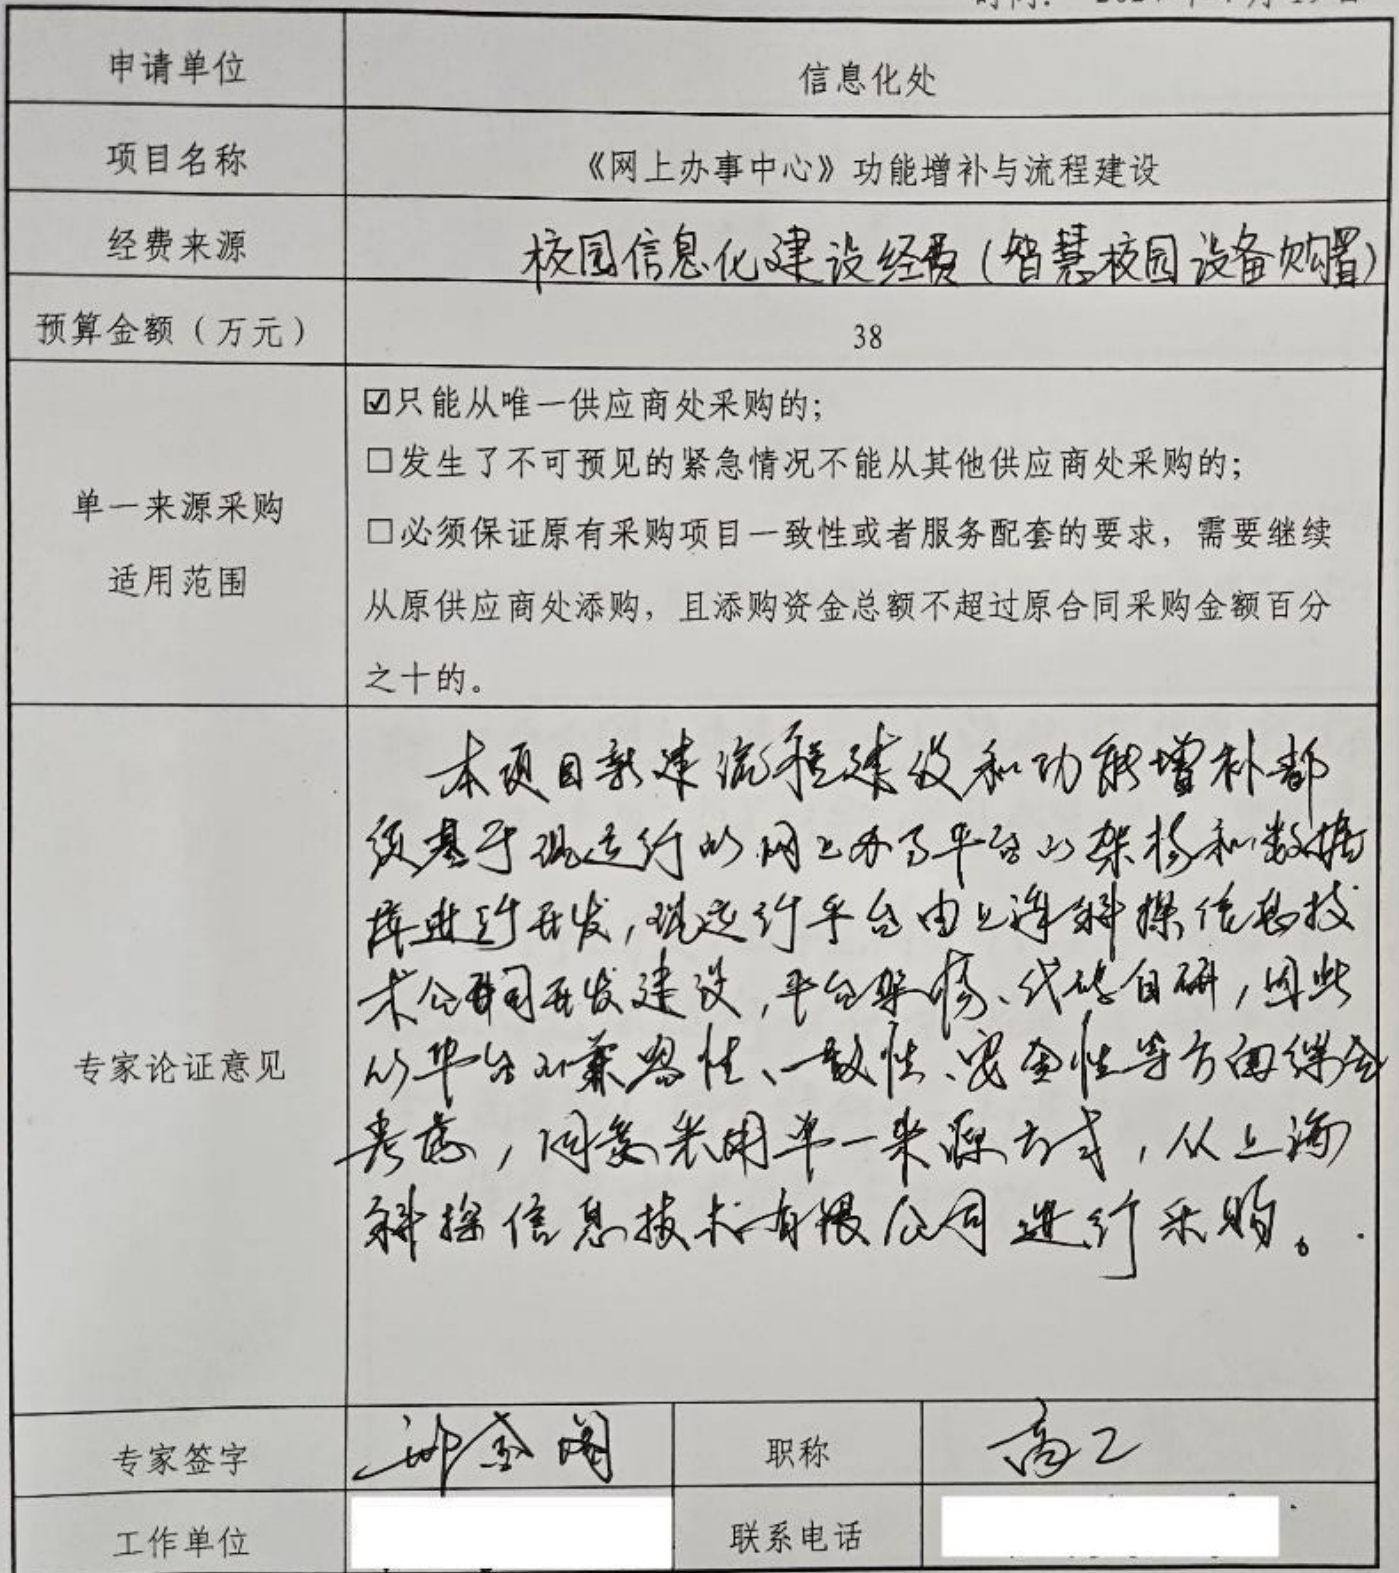 申请单位 信息化处
项目名称 《网上办事中心》功能增补与流程建设
经费来源 校园信息化建设经费(智慧校园设备购置)
预算金额(万元) 38
单一来源采购
适用范围
☑只能从唯一供应商处采购的;
□发生了不可预见的紧急情况不能从其他供应商处采购的;
□必须保证原有采购项目一致性或者服务配套的要求,需要继续
从原供应商处添购,且添购资金总额不超过原合同采购金额百分
之十的。
专家论证意见
本项目新建流程建设和功能增补都
须基于现运行的网上办事平台的架构和数据
库进行开发,现运行平台由上海斛探信息技
术公司开发建设,平台架构、代码自研,因此
从平台的兼容性、一致性、安全性等方面综合
考虑,同意采用单一来源方式,从上海
斛探信息技术有限公司进行采购。
专家签字 职称 高工
工作单位 联系电话